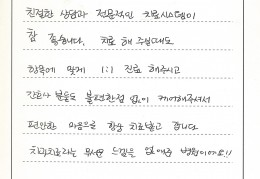 친절한 상담과 전문적인 치료시스템이
참 좋습니다. 치료 해 주실때도
항목에 맞게 1:1 진료 해주시고
간호사 분들도 불편한점 없이 케어해주셔서
편안한 마음으로 항상 치료받고 갑니다
치과치료라는 무서운 느낌을 없애준 병원이에요!!